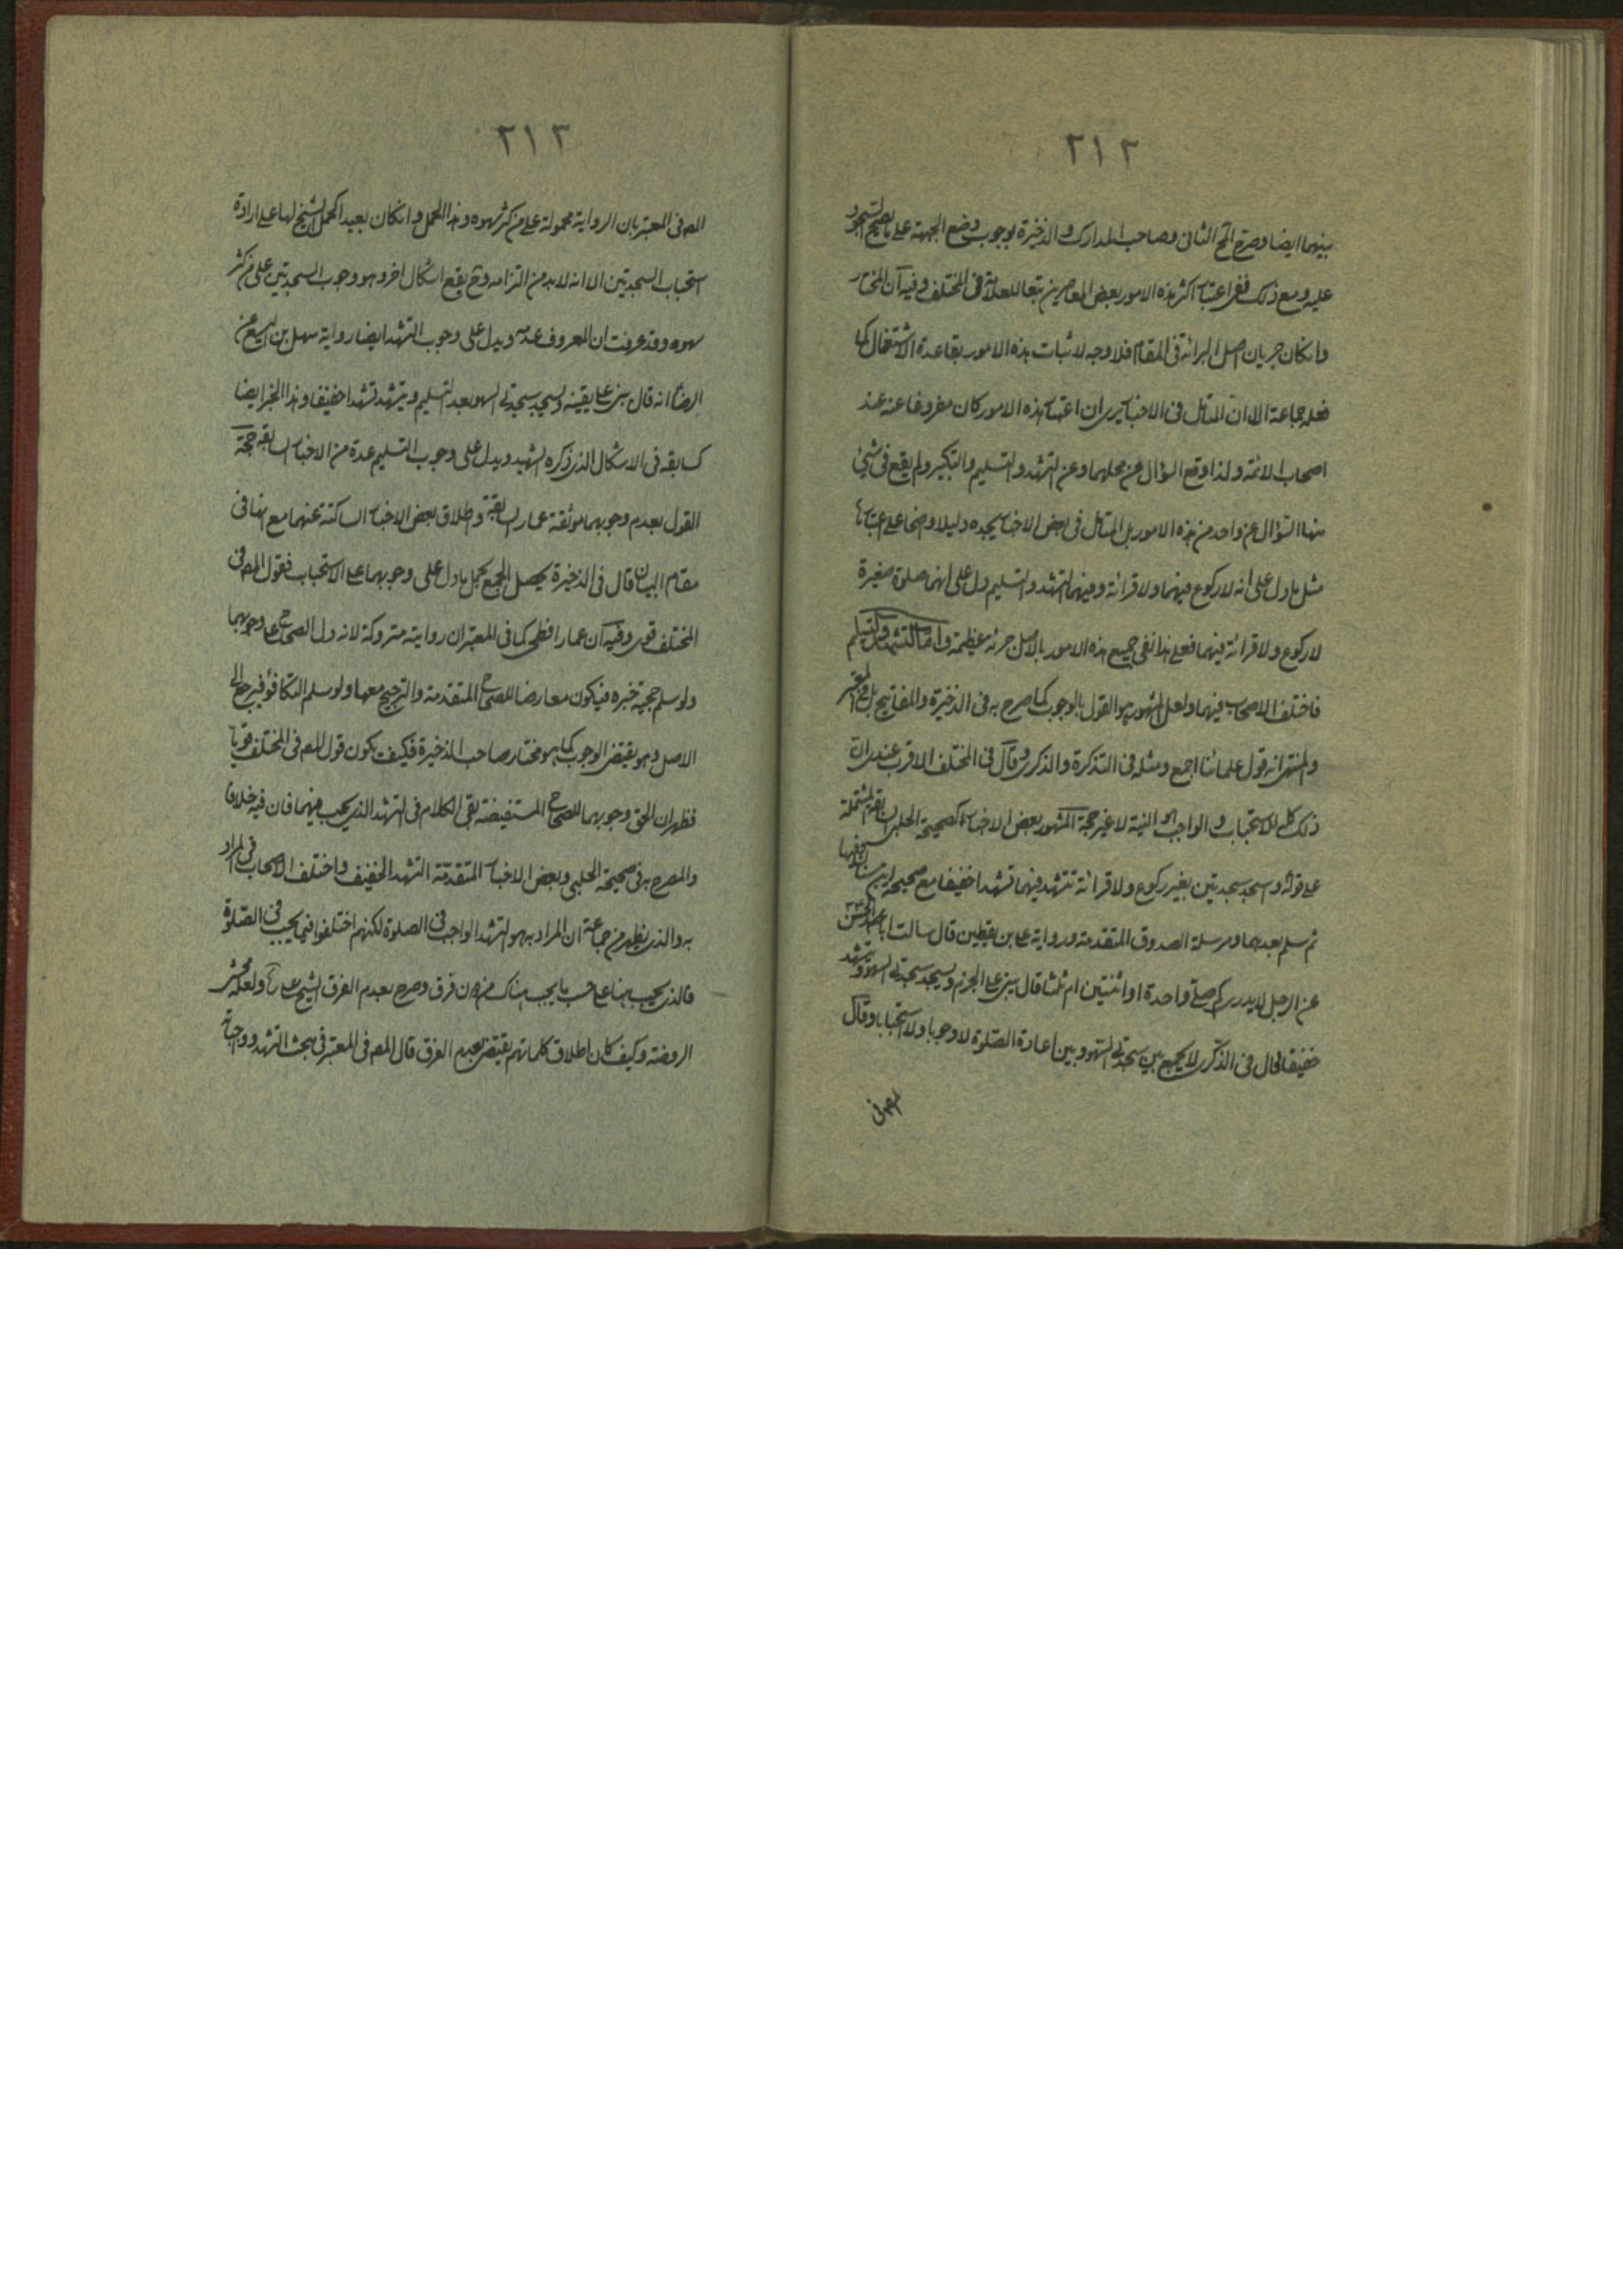 ٢١٢
بينهما ايضا وصرح المحقق الثانى وصاحب المدارك والذخيرة بوجوب وضع الجبهة على ما يصح السجود
عليه ومع ذلك فنفى اعتبار اكثر هذه الامور بعض المعاصرين تبعا للعلامة فى المختلف وفيه ان المختار
وان كان جريان اصل البرائة فى المقام فلا وجه لاثبات هذه الامور بقاعدة الاشتغال كما
فعله جماعة الا ان المتامل فى الاخبار يرى ان اعتبار هذه الامور كان مفروغا عنه عند
اصحاب الائمة ولذا وقع السؤال عن محلهما وعن التشهد والتسليم والتكبير ولم يقع فى شئ
منها السؤال عن واحد من هذه الامور بل المتامل فى بعض الاخبار يجده دليلا واضحا على اعتبارها
مثل ما دل على انه لا ركوع فيهما ولا قرائة وفيهما التشهد والتسليم دل على انهما صلوة صغيرة
لا ركوع ولا قرائة فيهما فعلى هذا نفى جميع هذه الامور بالاصل جرئة عظيمة واما التشهد والتسليم
فاختلف الاصحاب فيهما ولعل المشهور هو القول بالوجوب كما صرح به فى الذخيرة والمفاتيح بل فى المعتبر
والمنتهى انه قول علمائنا اجمع ومثله فى التذكرة والذكرى وقال فى المختلف الاقرب عندى ان
ذلك كله للاستحباب والواجب هو النية لا غير حجة المشهور بعض الاخبار كصحيحة الحلبى السابقة المشتملة
على قوله واسجد سجدتين بغير ركوع ولا قرائة تتشهد فيهما تشهدا خفيفا مع صحيحة ابن سنان
ثم سلم بعدهما ومرسلة الصدوق المتقدمة ورواية على بن يقطين قال سالت ابا الحسن
عن الرجل لا يدرى كم صلى واحدة او اثنتين ام ثلثا قال يبنى على الجزم ويسجد سجدتى السهو وتشهد
خفيفا قال فى الذكرى لا يجمع بين سجدتى السهو وبين اعادة الصلوة لا وجوبا ولا استحبابا وقال
المص فى
٢١٣
المص فى المعتبر بان الرواية محمولة على من كثر سهوه وهذا الحمل وان كان بعيدا كحمل الشيخ لها على ارادة
استحباب السجدتين الا انه لا بد من التزامه وح يقع اشكال اخر وهو وجوب السجدتين على من كثر
سهوه وقد عرفت ان المعروف عدمه ويدل على وجوب التشهد ايضا رواية سهل بن اليسع عن
الرضا انه قال يبنى على يقينه ويسجد سجدتى السهو بعد التسليم ويتشهد تشهدا خفيفا وهذا الخبر ايضا
كسابقه فى الاشكال الذى ذكره الشهيد ويدل على وجوب التسليم عدة من الاخبار السابقة حجة
القول بعدم وجوبهما موثقة عمار السابقة واطلاق بعض الاخبار الساكتة عنهما مع انها فى
مقام البيان قال فى الذخيرة يحصل الجمع بحمل ما دل على وجوبهما على الاستحباب فقول المص فى
المختلف قوى وفيه ان عمارا فطحى كما فى المعتبر ان روايته متروكة لانه دل الصحاح على وجوبهما
ولو سلم حجية خبره فيكون معارضا للصحاح المتقدمة والترجيح معها ولو سلم التكافؤ فيرجع الى
الاصل وهو يقتضى الوجوب كما هو مختار صاحب الذخيرة فكيف يكون قول المص فى المختلف قويا
فظهر ان الحق وجوبهما للصحاح المستفيضة بقى الكلام فى التشهد الذى يجب فيهما فان فيه خلافا
والمصرح به فى صحيحة الحلبى وبعض الاخبار المتقدمة التشهد الخفيف واختلف الاصحاب فى المراد
به والذى يظهر من جماعة ان المراد به هو التشهد الواجب فى الصلوة لكنهم اختلفوا فيما يجب فى الصلوة
فالذى يجب هنا على حسب ما يجب هناك من دون فرق وصرح بعدم الفرق الشيخ على
الروضة وكيف كان اطلاق كلماتهم يقتضى بعدم الفرق قال المص فى المعتبر فى مبحث التشهد وواجباته